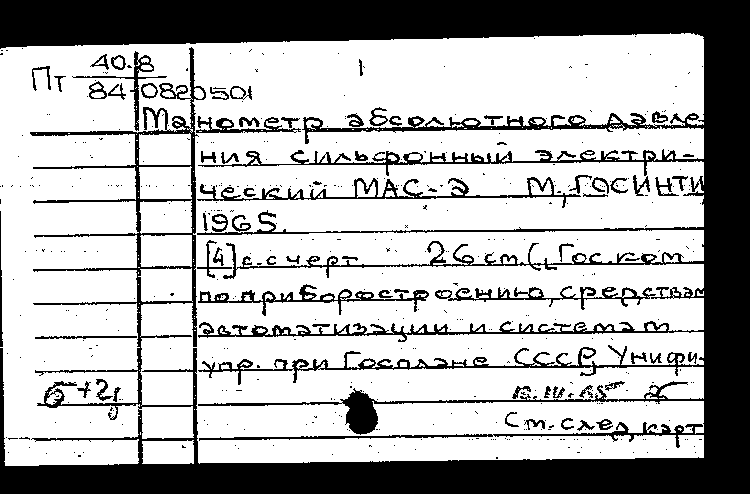 40.8 1
Пт 84-0820501
Манометр абсолютного давле-
ния сильфонный электри-
ческий МАС-Э М., ГОСИНТИ
1965.
[4] с. с черт. 26 см. (Гос. ком
по приборостроению, средствам
автоматизации и системам
упр. при Госплане СССР, Унифи-
б+2
См. след. карт